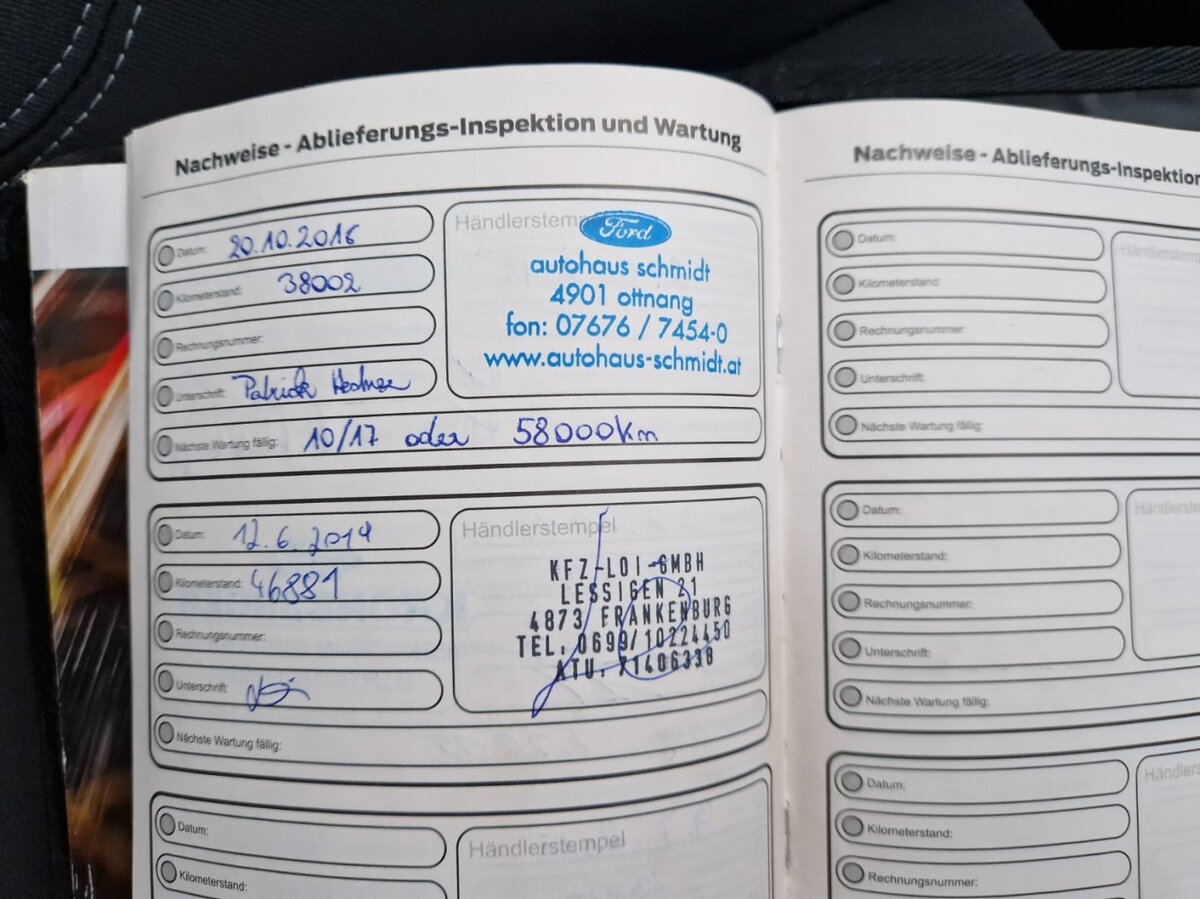 Nachweise - Ablieferungs-Inspektion und Wartung
Datum: 20.10.2016
Kilometerstand: 38002
Rechnungsnummer:
Unterschrift: Patrick
Nächste Wartung fällig: 10/17 oder 58000km
Händlerstempel
Ford
autohaus schmidt
4901 ottnang
fon: 07676 / 7454-0
www.autohaus-schmidt.at
Datum: 12.6.2019
Kilometerstand: 46881
Rechnungsnummer:
Unterschrift:
Nächste Wartung fällig:
Händlerstempel
KFZ-LOI-GMBH
LESSIGEN 21
4873 FRANKENBURG
TEL. 0699/10224450
ATU. 71406338
Datum:
Kilometerstand:
Händlerstempel
Nachweise - Ablieferungs-Inspektion
Datum:
Kilometerstand:
Rechnungsnummer:
Unterschrift:
Nächste Wartung fällig:
Händlerstemp
Datum:
Kilometerstand:
Rechnungsnummer:
Unterschrift:
Nächste Wartung fällig:
Händlerste
Datum:
Kilometerstand:
Rechnungsnummer:
Händlers